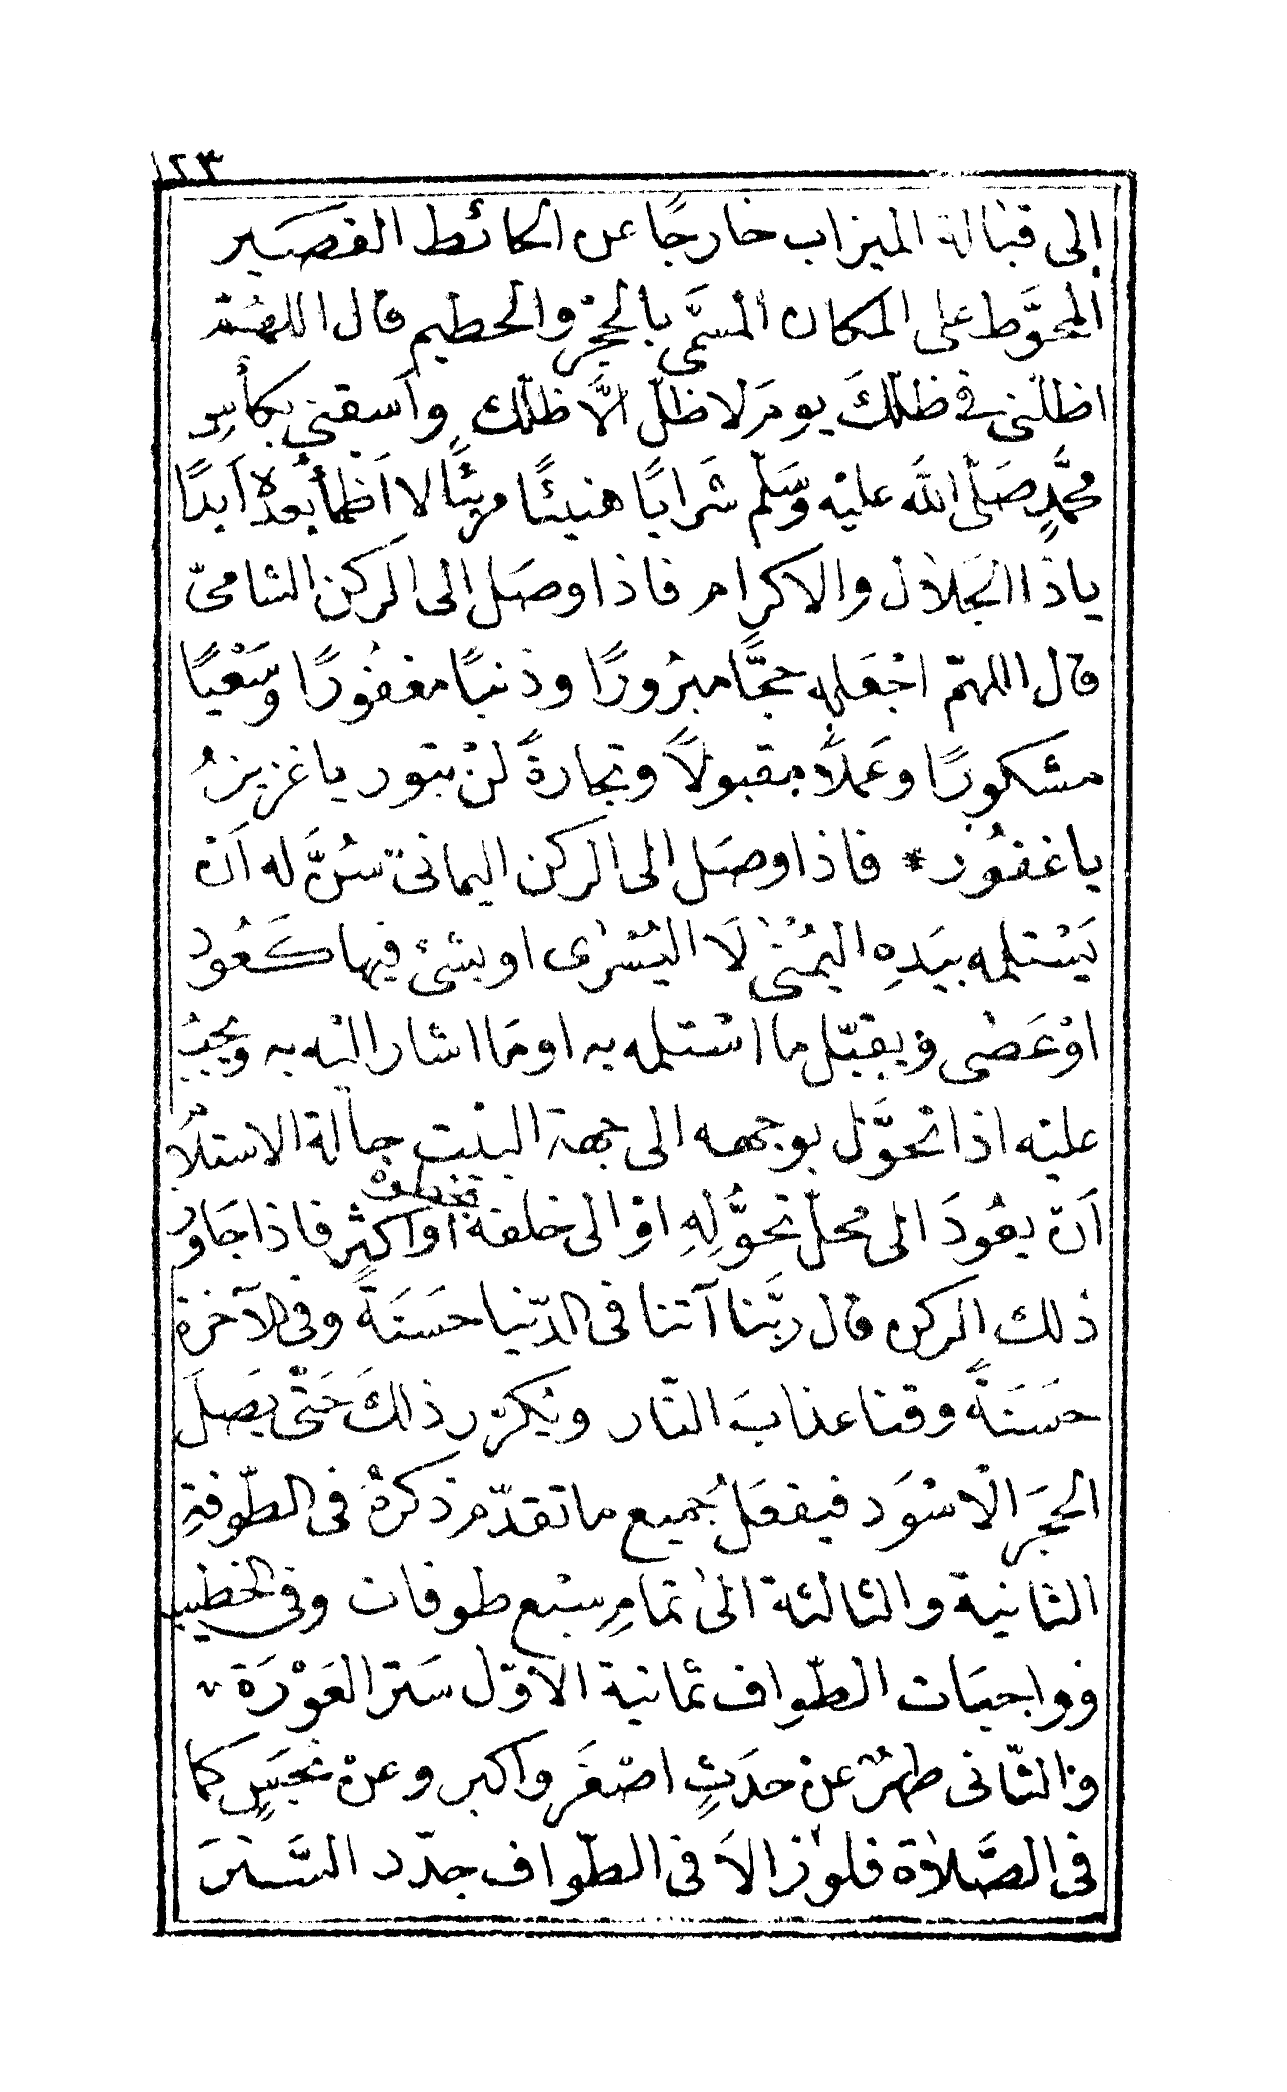 ١٢٣
إلى قبالة الميزاب خارجًا عن الحائط القصير
المحوَّط على المكان المسَمَّى بالحِجْرِ والحطيم قال اللهُمّ
اظلّنى فى ظلّلكَ يومَ لا ظلّ الَّا ظلّك وَاَسقنى بكأسِ
محمَّدٍ صَلّى اللهَ عليْه وَسَلّم شَرابًا هنيئًا مريئًا لا اَظمأُ بعْدهُ اَبدًا
ياذا الجَلال والاكرام فاذا وصَل الى الركن الشامىّ
قال اللهمّ اجْعَله حجًّا مبرُورًا وذنبًا مغفُورًا وسَعْيًا
مشكورًا وعَملاً مقبولاً وتجارةً لنْ تبور يا عزيزُ
يا غفُور * فاذا وصَل الى الركن اليمانىّ سُنَّ له اَنْ
يَسْتلمه بيَدِهِ اليُمْنىٰ لَا اليُسْرٰى او بشئ فيها كَعُود
اوْعَصٰى ويقبّل ما اسْتلمه به او مَا اشار اليْه به ويجبُ
عليْه اذا تحوَّل بوجهه الى جهة البيْت حالة الاستلاَم
اَنْ يعُودَ الى محلّ تحوُّلِهِ اوْ الى خلفه بخطوة اَو اكثر فاذا جَاوز
ذلك الركن قال ربَّنا آتنا فى الدّنيا حسَنَةً وفى الآخرة
حسَنَةً وقنا عذابَ النّار ويكرّر ذلكَ حَتّٰى يَصلَ
الحجَر الاَسْوَد فيفعَل جميع ما تقدّم ذكرهُ فى الطّوفةِ
الثانية والثالثة الىٰ تمامِ سبْع طوفات وفى الخطيب
وواجبَات الطّوِاف ثمانية الاوّل سَتر العَوْرَة
والثّانى طهرٌ عنْ حدَثٍ اصْغَر واَكبر وعنْ نجَسٍ كما
فى الصَّلاٰة فلو زالاَ فى الطّواف جدّد السَّترَ